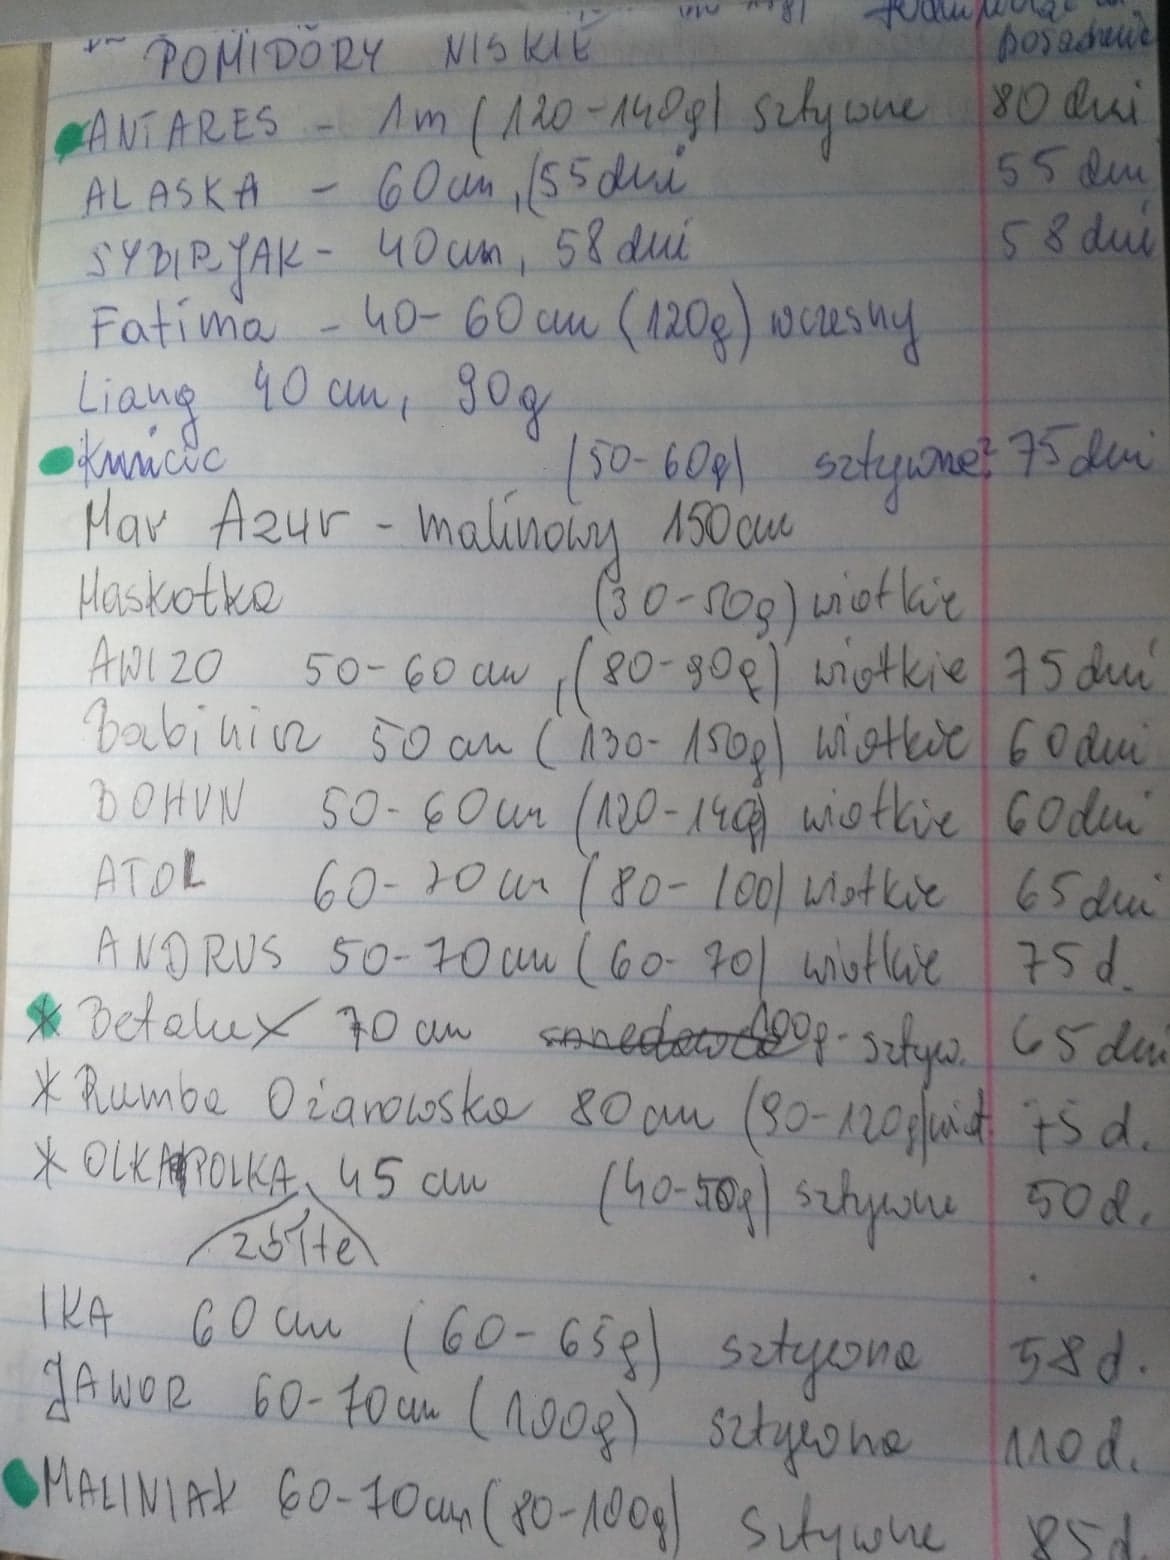 POMIDORY NISKIE posadzenia
ANTARES - 1m (120-140g) sztywne 80 dni
ALASKA - 60cm, (55 dni 55 dni
SYBIRJAK - 40cm, 58 dni 58 dni
Fatima - 40-60cm (120g) wczesny
Liang 40 cm, 90g
Kmicic (50-60g) sztywne? 75 dni
Mar Azur - malinowy 150cm
Maskotka (30-50g) wiotkie
AWIZO 50-60 cm, (80-90g) wiotkie 75 dni
Babinicz 50 cm (130-150g) wiotkie 60 dni
BOHUN 50-60cm (120-140g) wiotkie 60 dni
ATOL 60-70cm (80-100) wiotkie 65 dni
ANDRUS 50-70cm (60-70) wiotkie 75 d.
* Betalux 70 cm 100g - sztyw. 65 dni
* Rumba Ożarowska 80 cm (90-120g) wiot. 75 d.
* OLKA POLKA 45 cm (40-50g) sztywne 50 d.
żółte
IKA 60 cm (60-65g) sztywne 58 d.
JAWOR 60-70cm (100g) sztywne 110 d.
MALINIAK 60-70cm (80-100g) sztywne 85 d